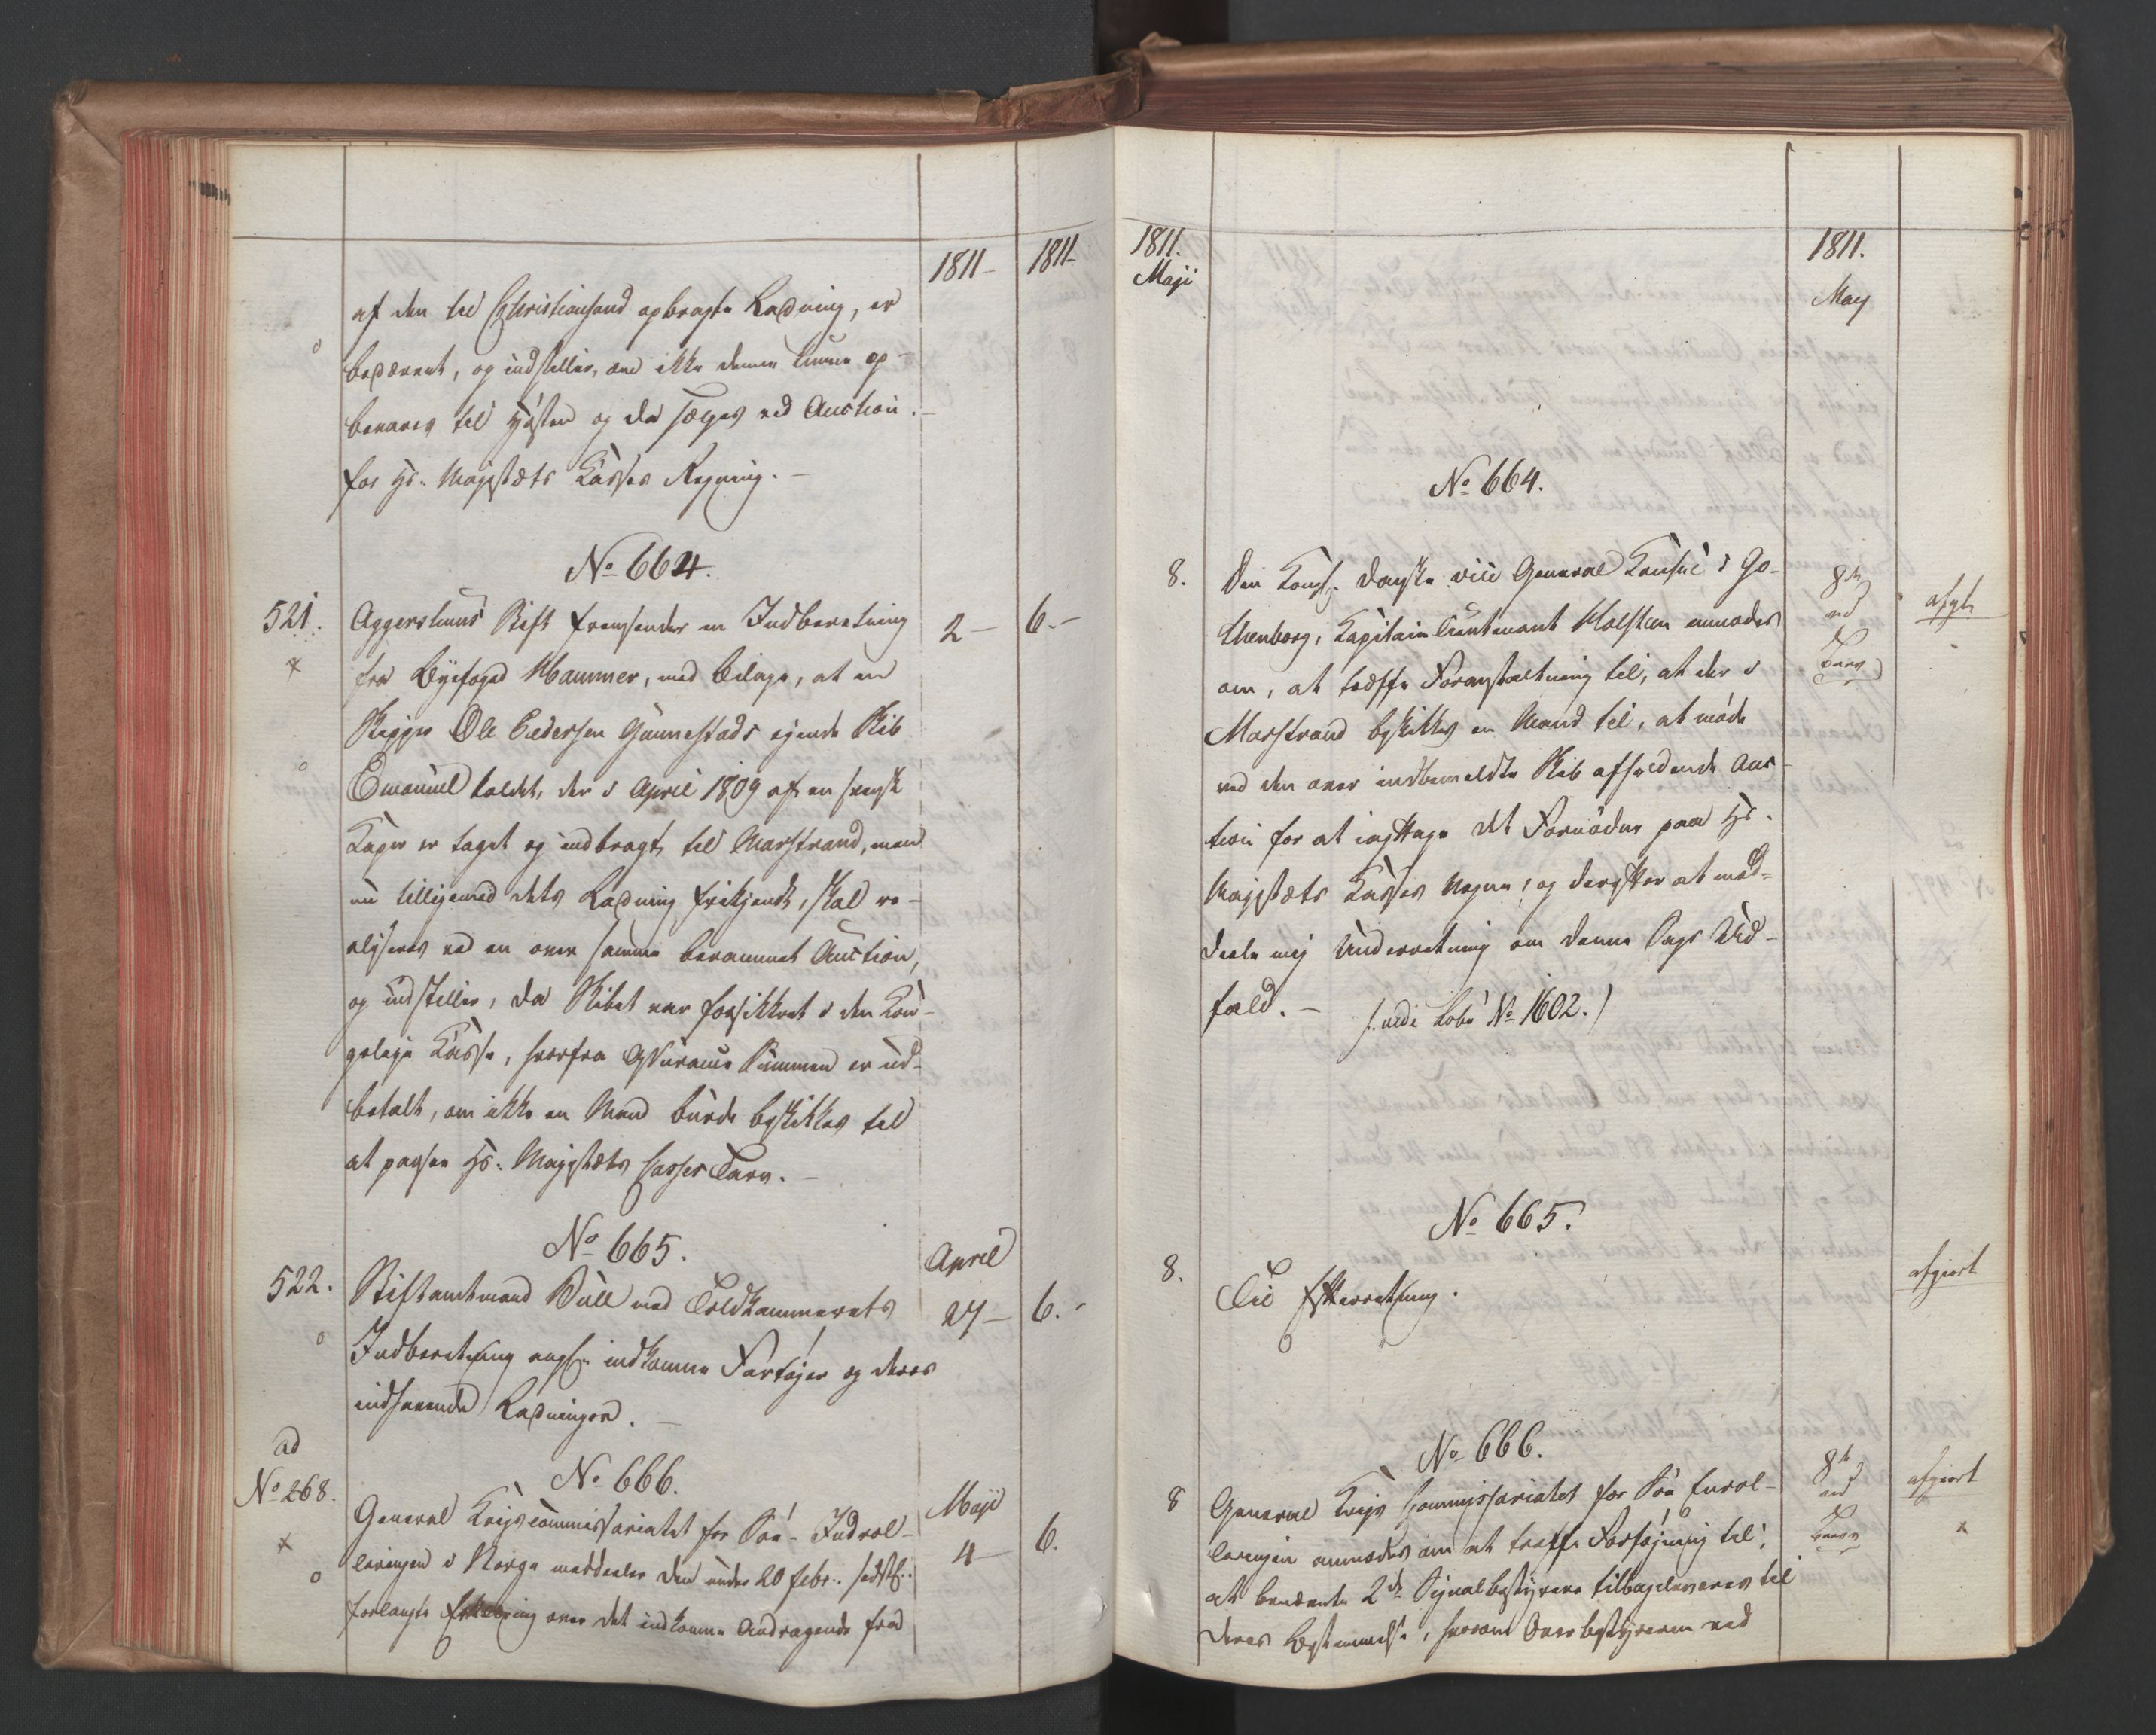 1811 —
1811 —
af den til Christiansand opbragte Ladning, er
bedærvet, og indstiller, om ikke denne kunne op-
bevares til Høsten og da sælges ved Auction
for Hs. Majestæts Kasses Regning. —
No 664.
521.
Aggershuus Stift fremsender en Indberetning
2 —
6. —
fra Byefoged Hammer, med Bilage, at en
Skipper Ole Pedersen Gunnestads ejende Skib
Emanuel kaldet, der i April 1809 af en svensk
Kaper er taget og indbragt til Marstrand, men
nu tilligemed dets Ladning frikjendt, skal re-
aliseres ved en over samme berammet Auction,
og indstiller, da Skibet var forsikkret i den Kon-
gelige Kasse, hvorfra Assurance Summen er ud-
betalt, om ikke en Mand burde beskikkes til
at passe Hs. Majestæts Casses Tarv. —
No 665.
April
522.
Stiftamtmand Bull med Toldkammerets
27 —
6. —
Indberetning angl. indkomne Fartøjer og deres
indhavende Ladninger. —
ad
No 268.
No 666.
Maji
General Krigscommissariatet for Søe-Indrol-
4 —
6.
leringen i Norge meddeeler den under 20 febr. sidstl.
forlangte Erklæring over det indkomne Andragende fra
1811.
Maji
1811.
May
No 664.
8.
Den Kongl. danske vice General Konsul i Go-
8de
ved
Brev
afgk
thenborg, Kapitain Lieutenant Holsten anmodes
om, at træffe Foranstaltning til, at der i
Marstrand beskikkes en Mand til, at møde
ved den over indbemeldte Skib afholdende Auc-
tion for at iagttage det Fornødne paa Hs.
Majestæts Kasses Vegne, og derefter at med-
deele mig Underretning om denne Sags Ud-
fald. — (: vide Lobe No 1602. )
No 665.
8.
Til Efterretning.
afgiort
No 666.
8
General Krigs Commissariatet for Søe Enrol-
8de
ved
Brev
afgiort
x
leringen anmodes om at træffe Forføjning til,
at benævnte 2de Signalbestyrere tilbageleveres til
deres Bestemmelse, hvorom Overbestyreren ved